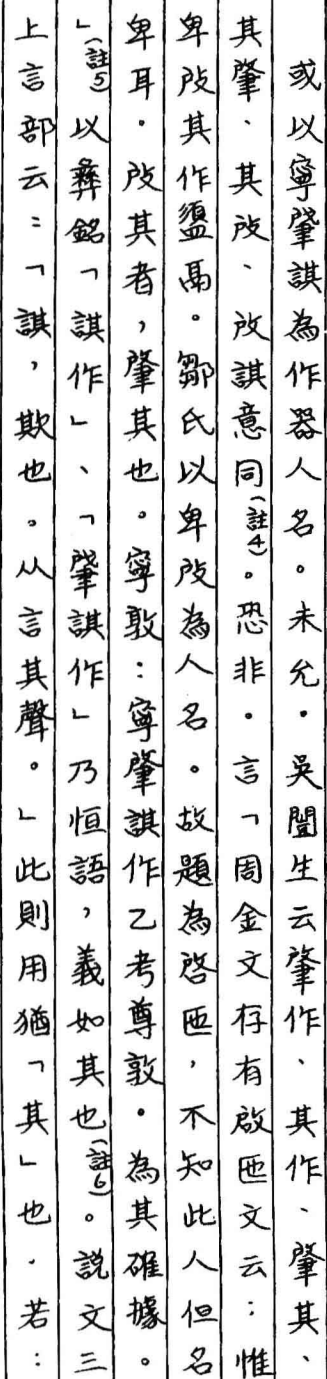 或以寧肈諆為作器人名。未允。吳闓生云肇作、其作、肇其、
其肇、其攺、攺諆意同(註4)。恐非。言「周金文存有啟匜文云:惟
卑攺其作盨鬲。鄒氏以卑攺為人名。故題為啓匜,不知此人但名
卑耳。攺其者,肇其也。寧敦:寧肇諆作乙考尊敦。為其確據。
」(註5)以彝銘「諆作」、「肈諆作」乃恒語,義如其也(註6)。說文三
上言部云:「諆,欺也。从言其聲。」此則用猶「其」也。若: